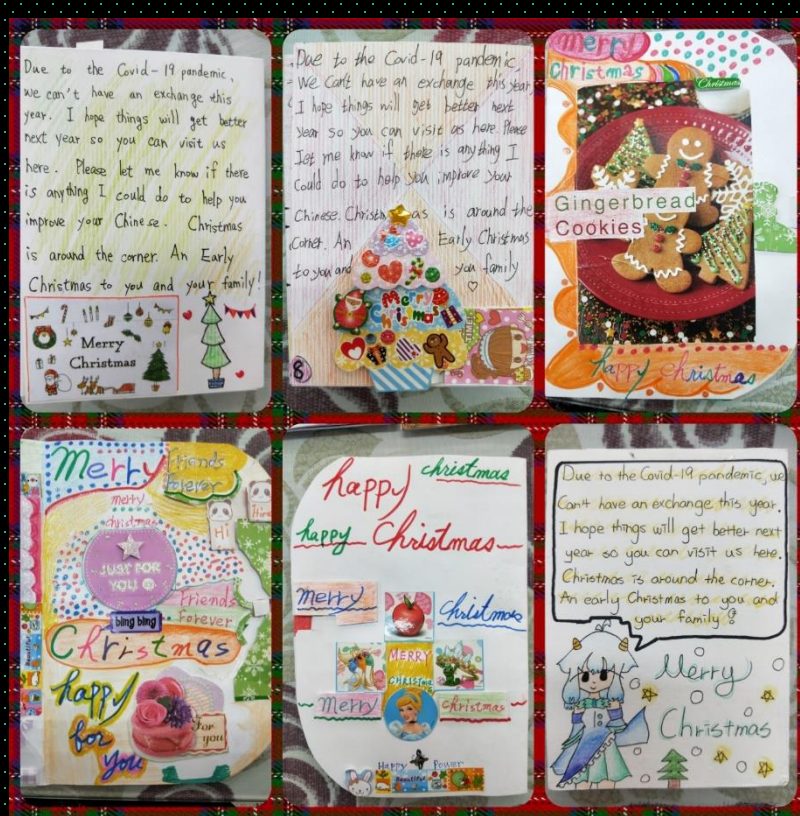 Due to the Covid-19 pandemic,
we can't have an exchange this
year. I hope things will get better
next year so you can visit us
here. Please let me know if there
is anything I could do to help you
improve your Chinese. Christmas
is around the corner. An Early
Christmas to you and your family!
Merry
Christmas
Due to the Covid-19 pandemic,
We Can't have an exchange this year,
I hope things will get better next
year so you can visit us here. Please
let me know if there is any thing I
Could do to help you improve your
Chinese. Christmas is around the
Corner. An Early Christmas
to you and you family
Merry
Christmas
8
Merry
Christmas
Christmas
Gingerbread
Cookies
happy christmas
Merry
Friends
forever
merry
christmas
Hi
JUST FOR
YOU
Friends
forever
bing bing
Christmas
happy
for
you
For
you
happy christmas
happy Christmas
Merry christmas
MERRY
CHRISTMAS
Merry christmas
Happy Power
Beautiful
Due to the Covid-19 pandemic, we
Can't have an exchange this year.
I hope things will get better next
year so you can visit us here.
Christmas is around the corner.
An early Christmas to you and
your family!
Merry
Christmas